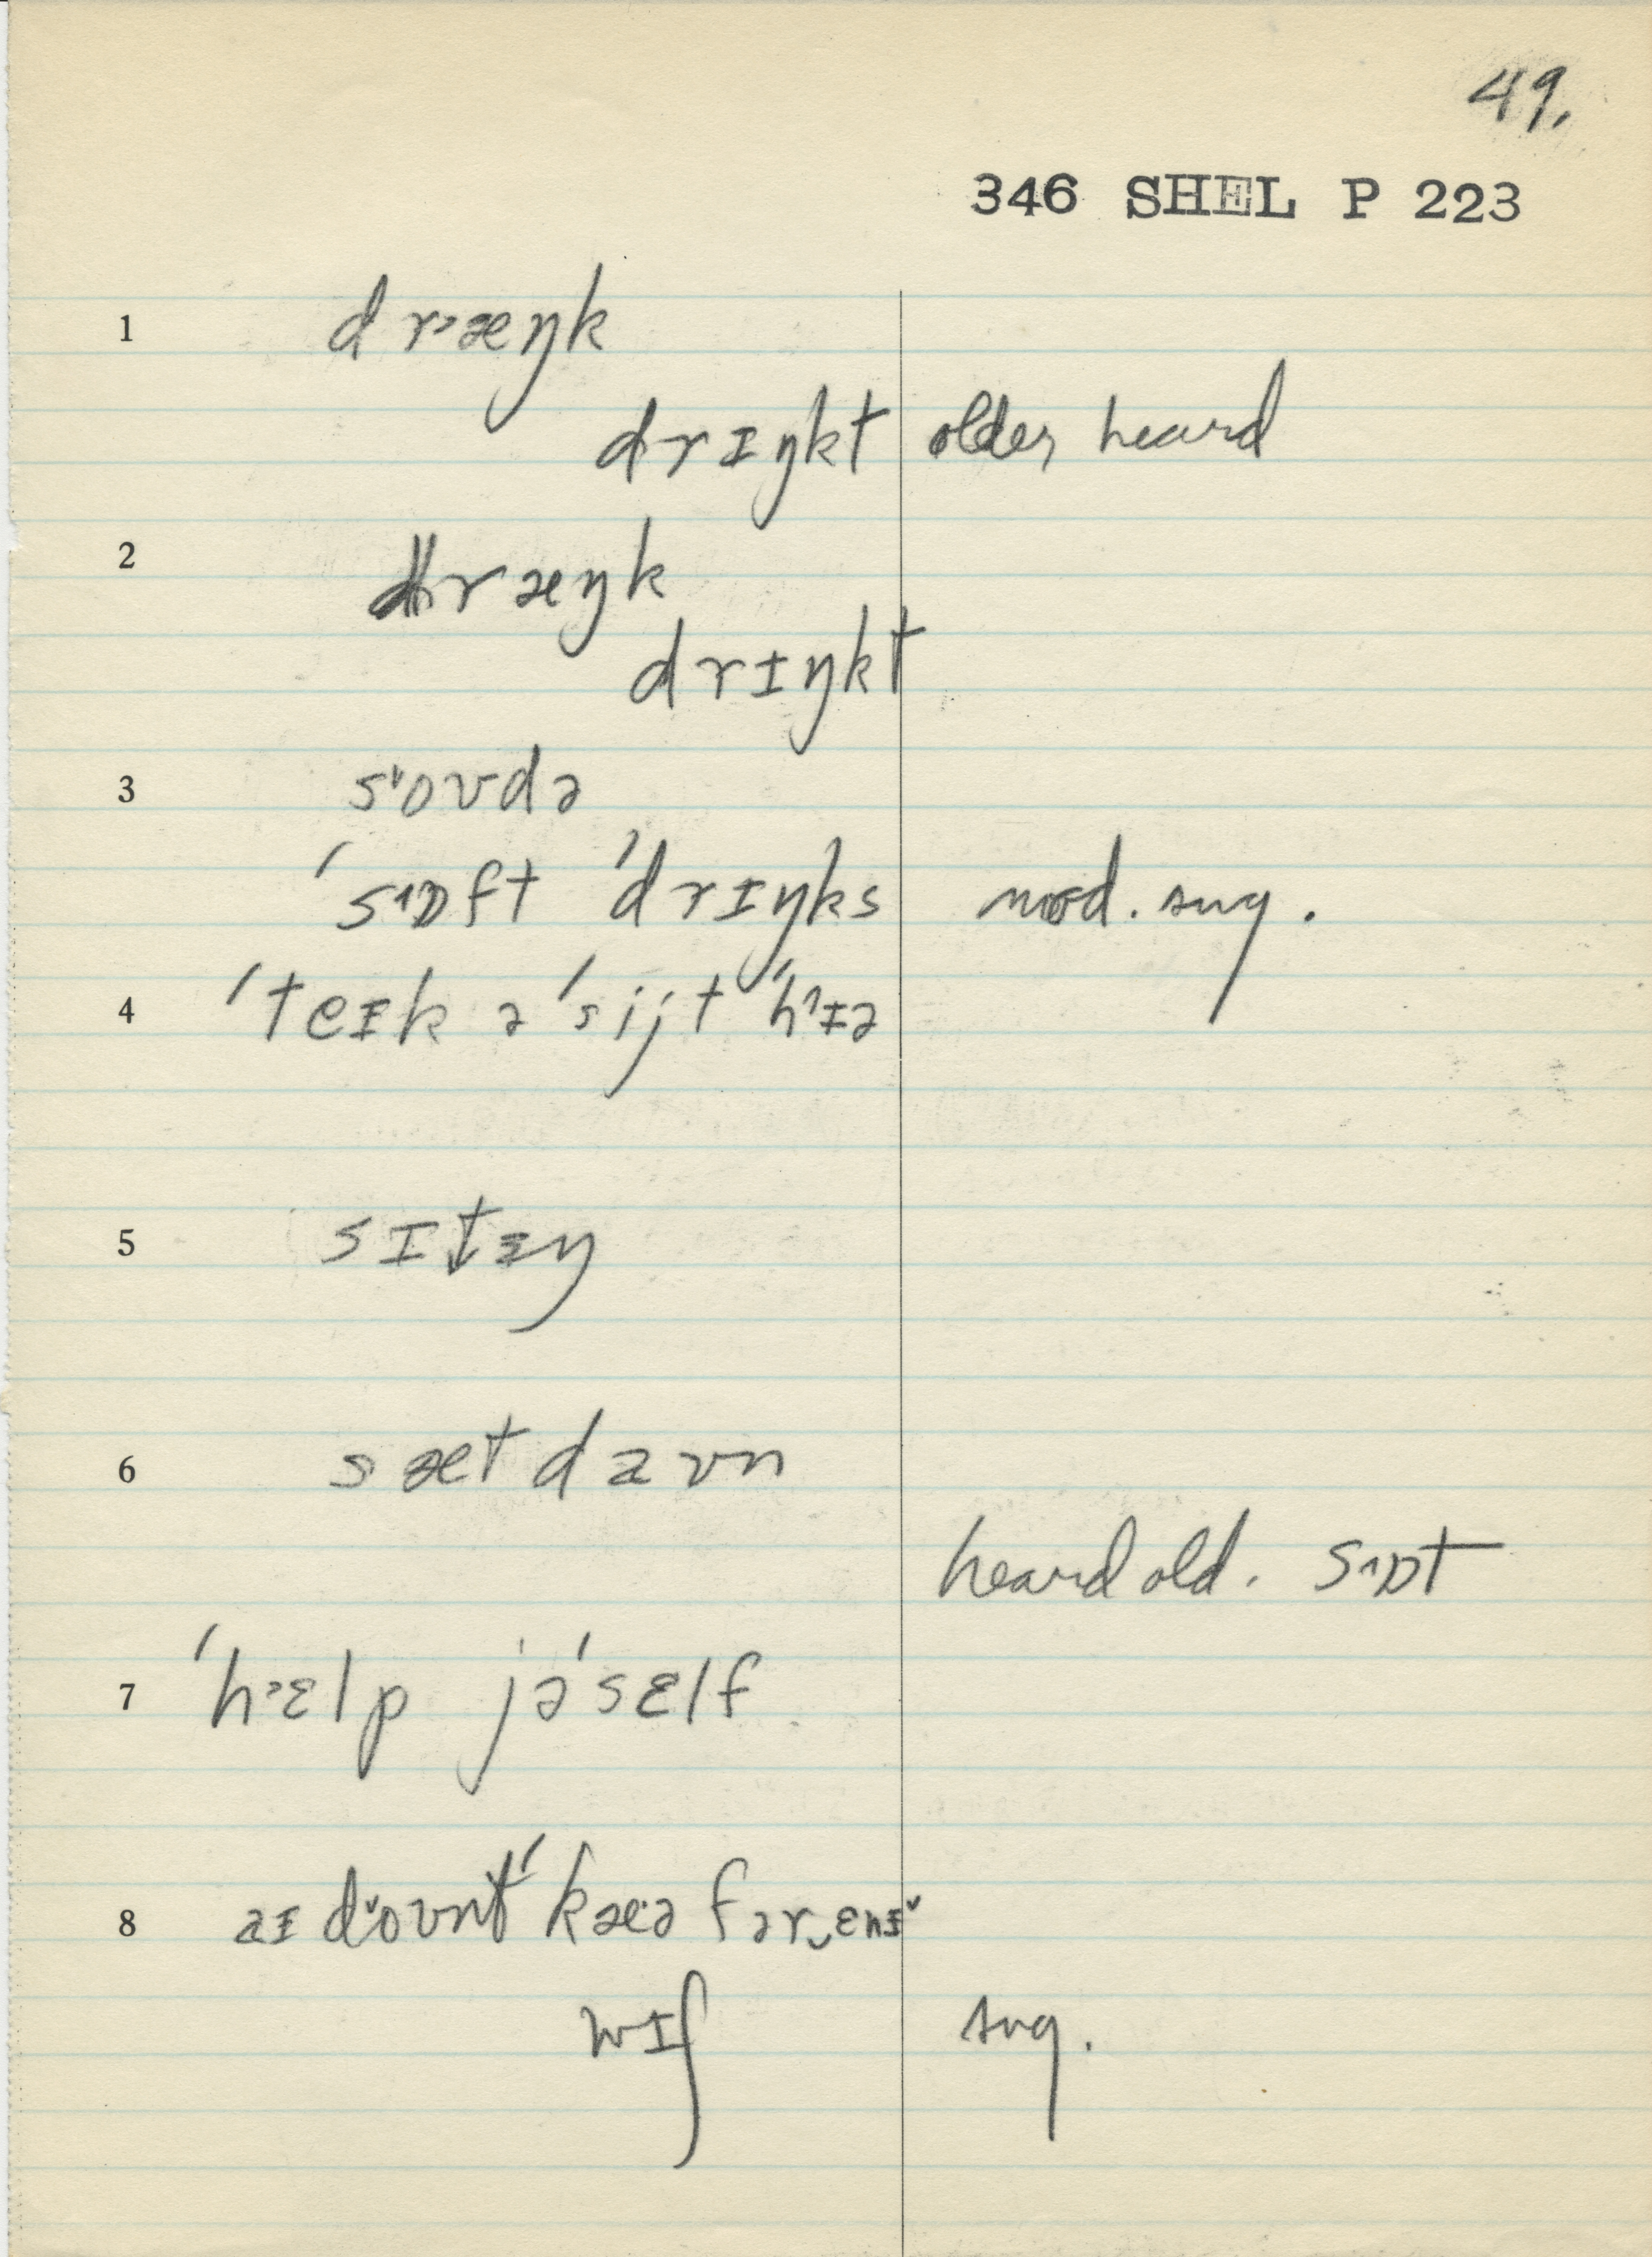 49.
346 SHEL P 223
1 dr˃æŋk
drɪŋkt older, heard
2 dræŋk
drɪŋkt
3 s˅oʊdə
ˈs˄ɒft ˈdrɪŋks mod. sug.
4 ˈteɪk ə ˈsijt ˈh˄ɪə
5 sɪt̬ɪŋ
6 sæt daʊn
heard old. s˄ɒt
7 ˈh˃ɛlp jəˈsɛlf
8 aɪ d˅oʊnt ˈkæ·ə fər‿ɛnɪ˅
wɪʃ sug.